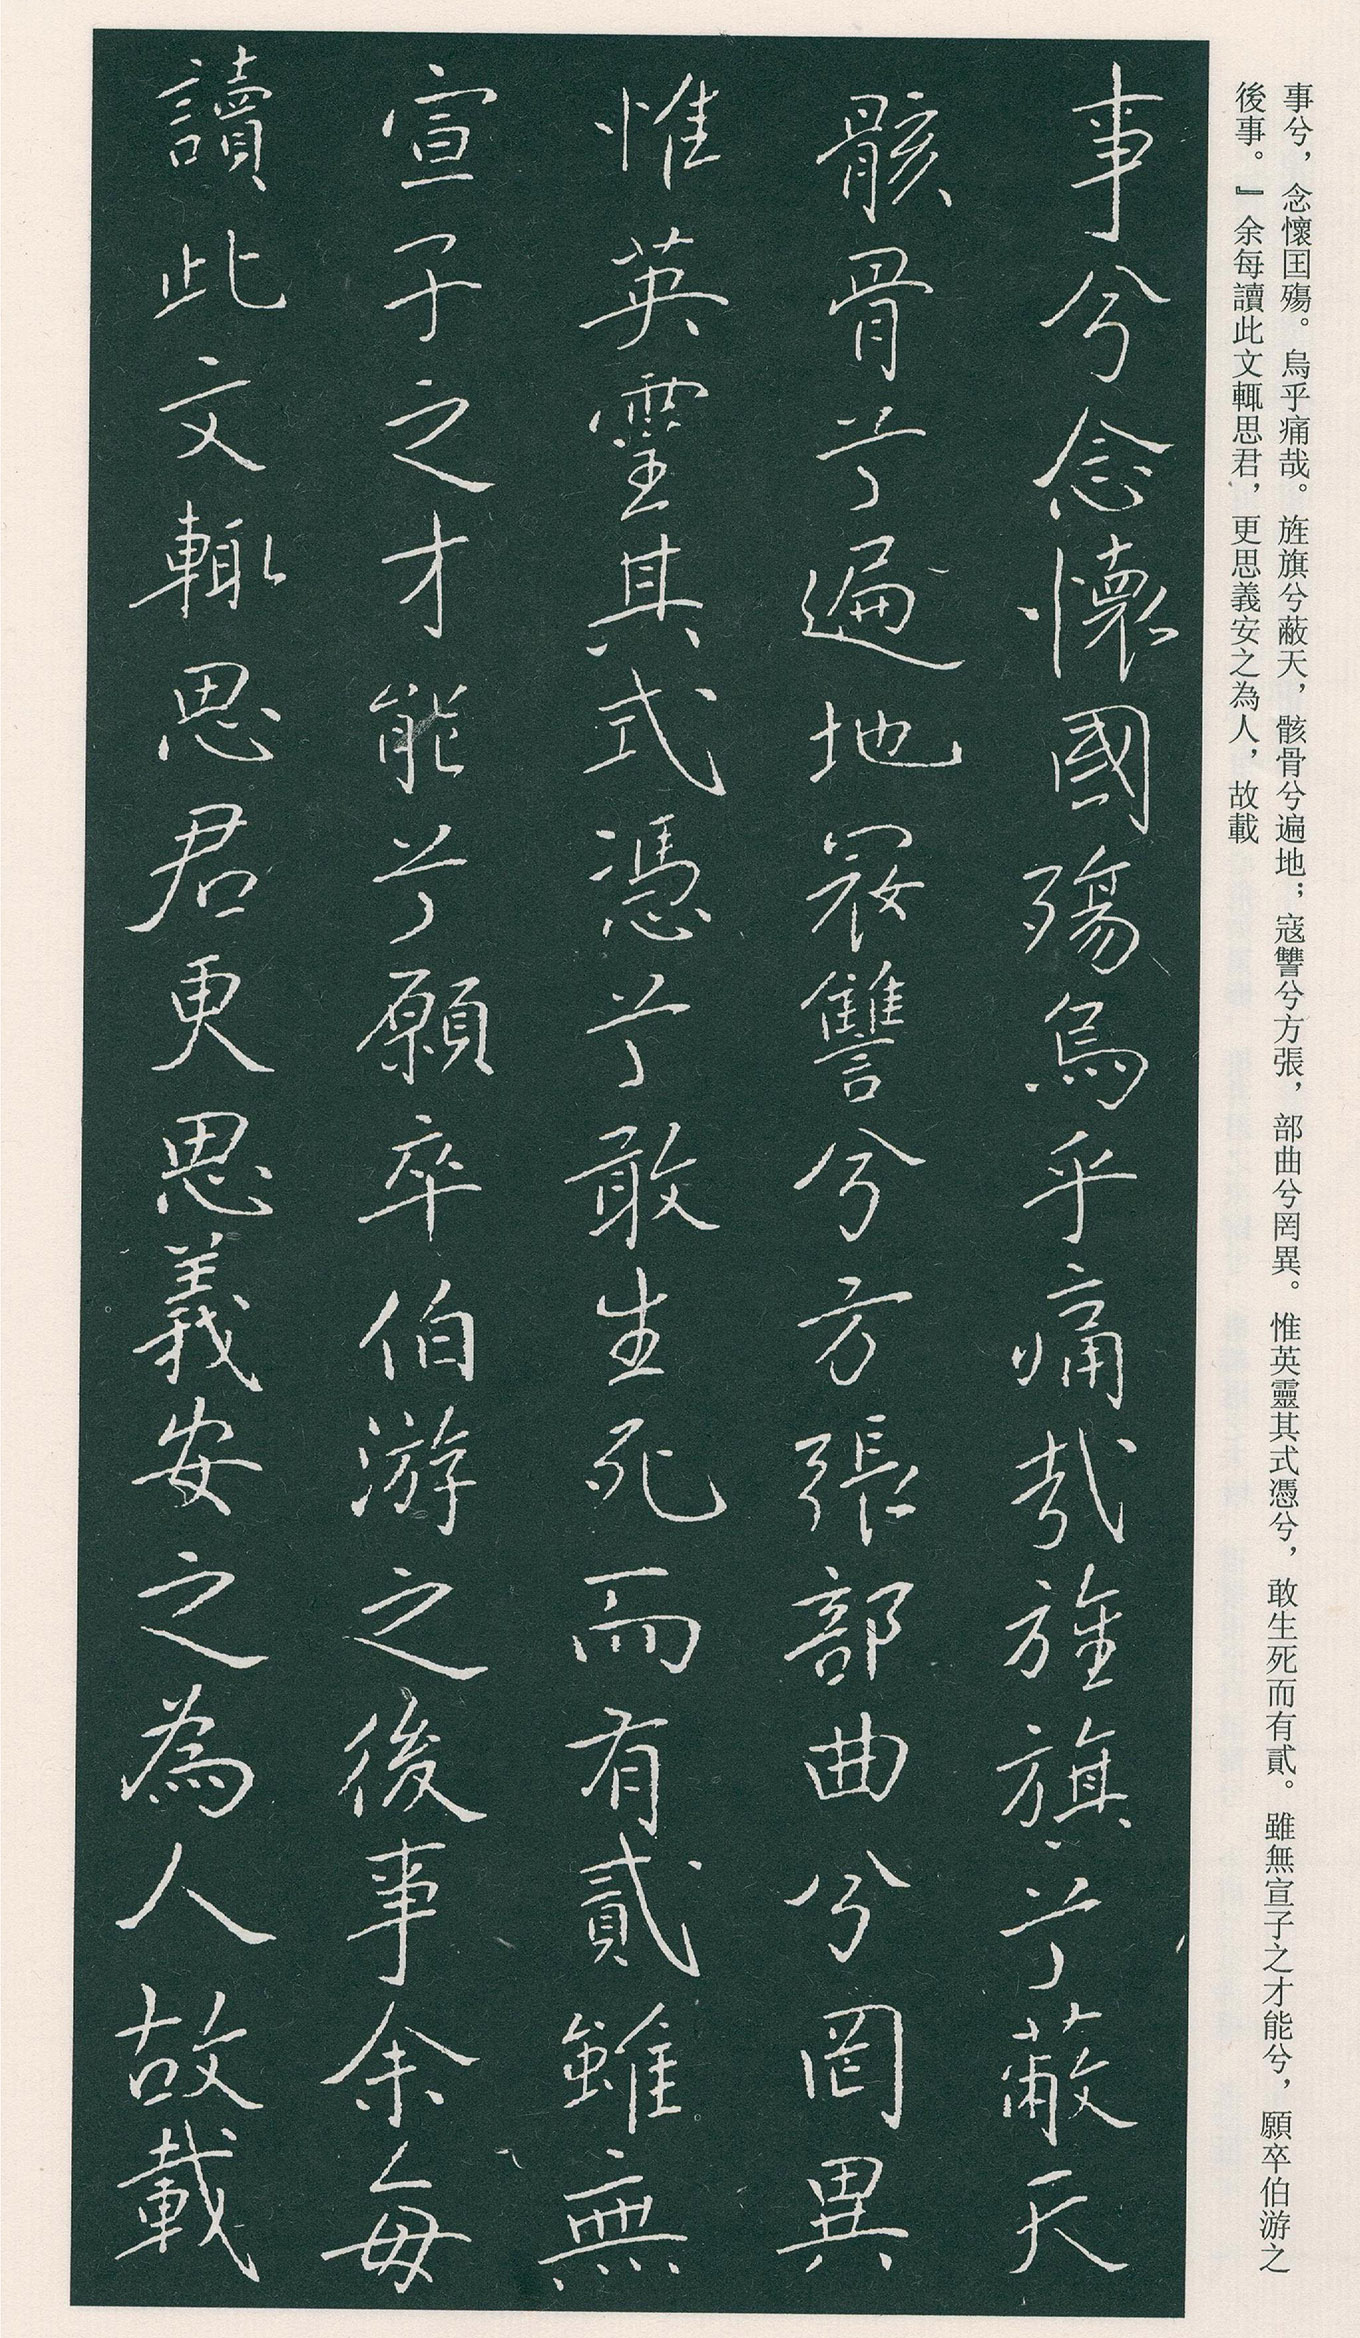 事兮，念懷囯殤。烏乎痛哉。旌旗兮蔽天，骸骨兮遍地；寇讐兮方張，部曲兮罔異。惟英靈其式憑兮，敢生死而有貳。雖無宣子之才能兮，願卒伯游之
後事。』余每讀此文輒思君，更思義安之為人，故載
事兮念懷國殤烏乎痛哉旌旗兮蔽天
骸骨兮遍地寇讐兮方張部曲兮罔異
惟英靈其式憑兮敢生死而有貳雖無
宣子之才能兮願卒伯游之後事余每
讀此文輒思君更思義安之為人故載